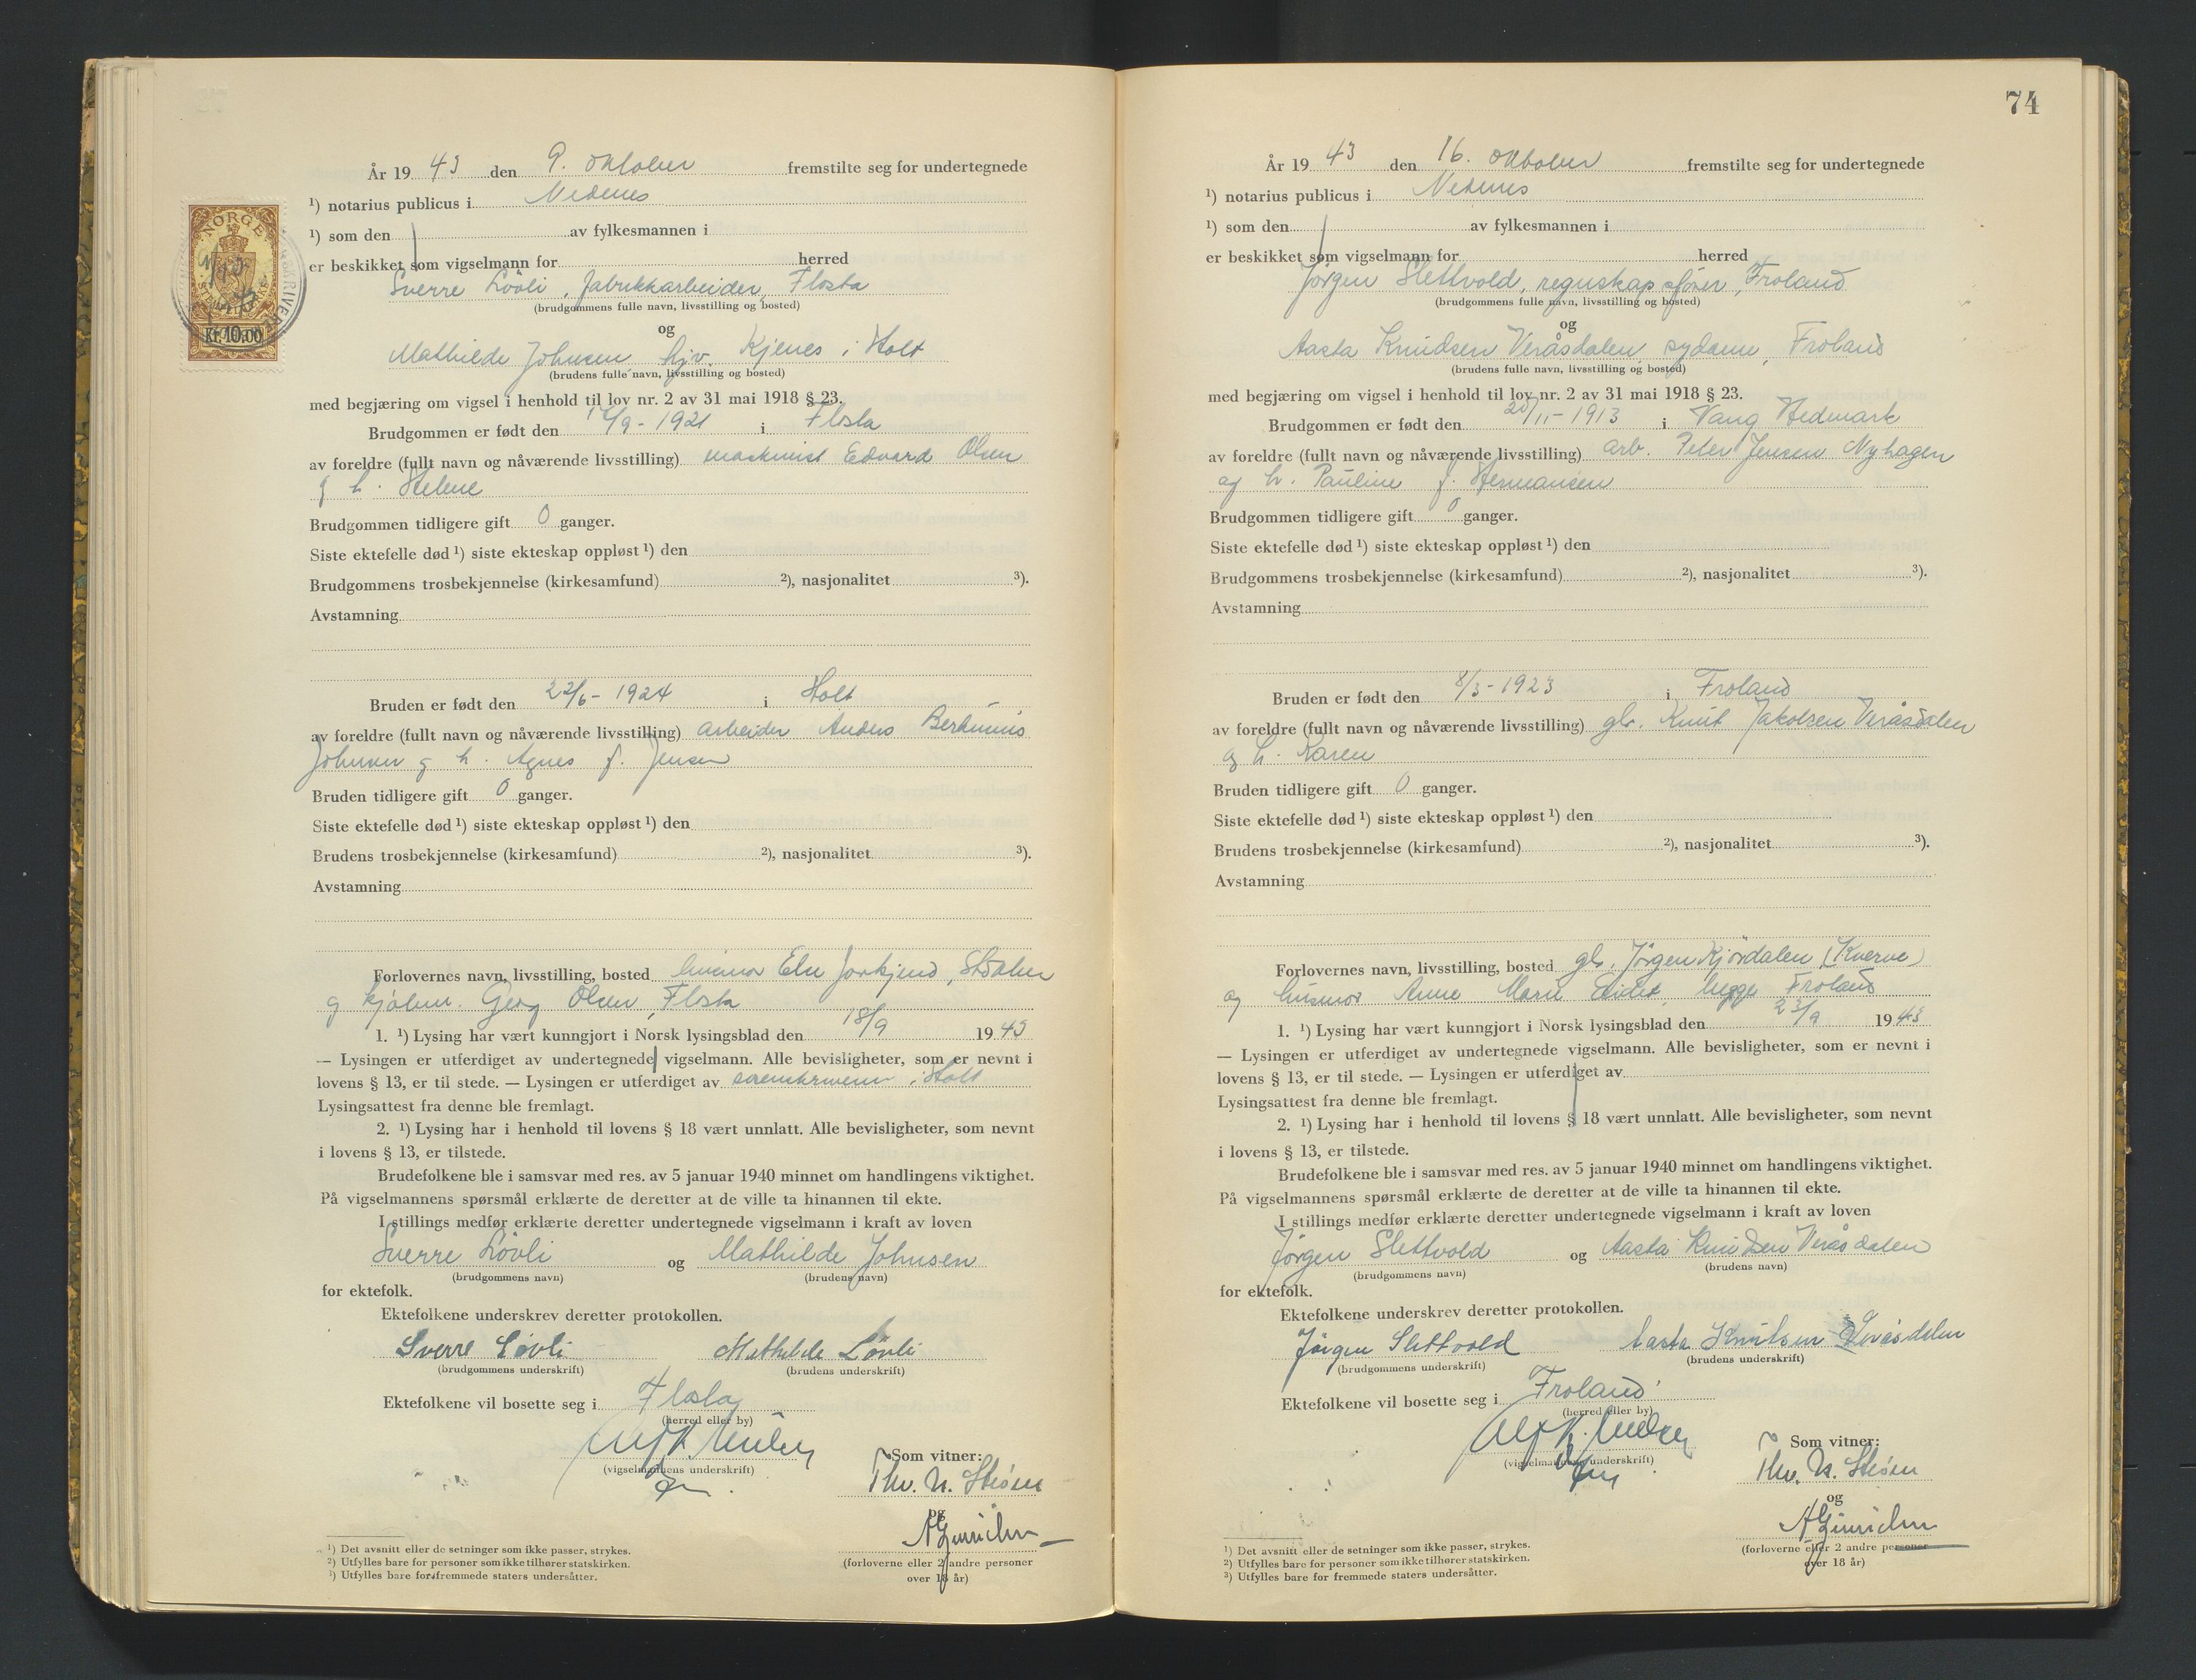 År 19 43 den 9. oktober fremstilte seg for undertegnede
¹) notarius publicus i Nedenes
¹) som den av fylkesmannen i
er beskikket som vigselmann for herred
Sverre Lövli, fabrikkarbeider, Flosta
(brudgommens fulle navn, livsstilling og bosted)
og
Mathilde Johnsen hjv. Kjenes i Holt
(brudens fulle navn, livsstilling og bosted)
med begjæring om vigsel i henhold til lov nr. 2 av 31 mai 1918 § 23.
Brudgommen er født den /9 - 1921 i Flosta
av foreldre (fullt navn og nåværende livsstilling) maskinist Edvard Olsen
g h. Helene
Brudgommen tidligere gift 0 ganger.
Siste ektefelle død ¹) siste ekteskap oppløst ¹) den
Brudgommens trosbekjennelse (kirkesamfund) ²), nasjonalitet ³).
Avstamning
Bruden er født den 22/6 - 1924 i Holt
av foreldre (fullt navn og nåværende livsstilling) arbeider Anders
Johnsen g h. Agnes f. Jensen
Bruden tidligere gift 0 ganger.
Siste ektefelle død ¹) siste ekteskap oppløst ¹) den
Brudens trosbekjennelse (kirkesamfund) ²), nasjonalitet ³).
Avstamning
Forlovernes navn, livsstilling, bosted
g Olsen, Flosta
1. ¹) Lysing har vært kunngjort i Norsk lysingsblad den 18/9 19 43
— Lysingen er utferdiget av undertegnede vigselmann. Alle bevisligheter, som er nevnt i
lovens § 13, er til stede. — Lysingen er utferdiget av sorenskriveren i Holt
Lysingsattest fra denne ble fremlagt.
2. ¹) Lysing har i henhold til lovens § 18 vært unnlatt. Alle bevisligheter, som nevnt
i lovens § 13, er tilstede.
Brudefolkene ble i samsvar med res. av 5 januar 1940 minnet om handlingens viktighet.
På vigselmannens spørsmål erklærte de deretter at de ville ta hinannen til ekte.
I stillings medfør erklærte deretter undertegnede vigselmann i kraft av loven
Sverre Lövli og Mathilde Johnsen
(brudgommens navn) (brudens navn)
for ektefolk.
Ektefolkene underskrev deretter protokollen.
Sverre Lövli Mathilde Lövli
(brudgommens underskrift) (brudens underskrift)
Ektefolkene vil bosette seg i Flosta
(herred eller by)
(vigselmannens underskrift)
Som vitner:
Thv. N. Steen
og
(forloverne eller 2 andre personer
over 18 år)
¹) Det avsnitt eller de setninger som ikke passer, strykes.
²) Utfylles bare for personer som ikke tilhører statskirken.
³) Utfylles bare for fremmede staters undersåtter.
NORGE
Kr. 10.00
74
År 19 43 den 16. oktober fremstilte seg for undertegnede
¹) notarius publicus i Nedenes
¹) som den av fylkesmannen i
er beskikket som vigselmann for herred
Jörgen Slettvold, regnskapsförer, Froland
(brudgommens fulle navn, livsstilling og bosted)
og
Aasta Knudsen Veråsdalen, sydame, Froland
(brudens fulle navn, livsstilling og bosted)
med begjæring om vigsel i henhold til lov nr. 2 av 31 mai 1918 § 23.
Brudgommen er født den 20/11 - 1913 i Vang Hedmark
av foreldre (fullt navn og nåværende livsstilling) arb. Peter Jensen Nyhagen
og h. Pauline f. Hermansen
Brudgommen tidligere gift 0 ganger.
Siste ektefelle død ¹) siste ekteskap oppløst ¹) den
Brudgommens trosbekjennelse (kirkesamfund) ²), nasjonalitet ³).
Avstamning
Bruden er født den 8/3 - 1923 i Froland
av foreldre (fullt navn og nåværende livsstilling) gbr. Knut Jakobsen Veråsdalen
og h. Karen
Bruden tidligere gift 0 ganger.
Siste ektefelle død ¹) siste ekteskap oppløst ¹) den
Brudens trosbekjennelse (kirkesamfund) ²), nasjonalitet ³).
Avstamning
Forlovernes navn, livsstilling, bosted gbr. Jörgen Kjördalen (Kverve)
og husmor Anne Marie begge Froland
1. ¹) Lysing har vært kunngjort i Norsk lysingsblad den 23/9 19 43
— Lysingen er utferdiget av undertegnede vigselmann. Alle bevisligheter, som er nevnt i
lovens § 13, er til stede. — Lysingen er utferdiget av
Lysingsattest fra denne ble fremlagt.
2. ¹) Lysing har i henhold til lovens § 18 vært unnlatt. Alle bevisligheter, som nevnt
i lovens § 13, er tilstede.
Brudefolkene ble i samsvar med res. av 5 januar 1940 minnet om handlingens viktighet.
På vigselmannens spørsmål erklærte de deretter at de ville ta hinannen til ekte.
I stillings medfør erklærte deretter undertegnede vigselmann i kraft av loven
Jörgen Slettvold og Aasta Knudsen Veråsdalen
(brudgommens navn) (brudens navn)
for ektefolk.
Ektefolkene underskrev deretter protokollen.
Jörgen Slettvold Aasta Knutsen Veråsdalen
(brudgommens underskrift) (brudens underskrift)
Ektefolkene vil bosette seg i Froland
(herred eller by)
(vigselmannens underskrift)
Som vitner:
Thv. N. Steen
og
(forloverne eller 2 andre personer
over 18 år)
¹) Det avsnitt eller de setninger som ikke passer, strykes.
²) Utfylles bare for personer som ikke tilhører statskirken.
³) Utfylles bare for fremmede staters undersåtter.